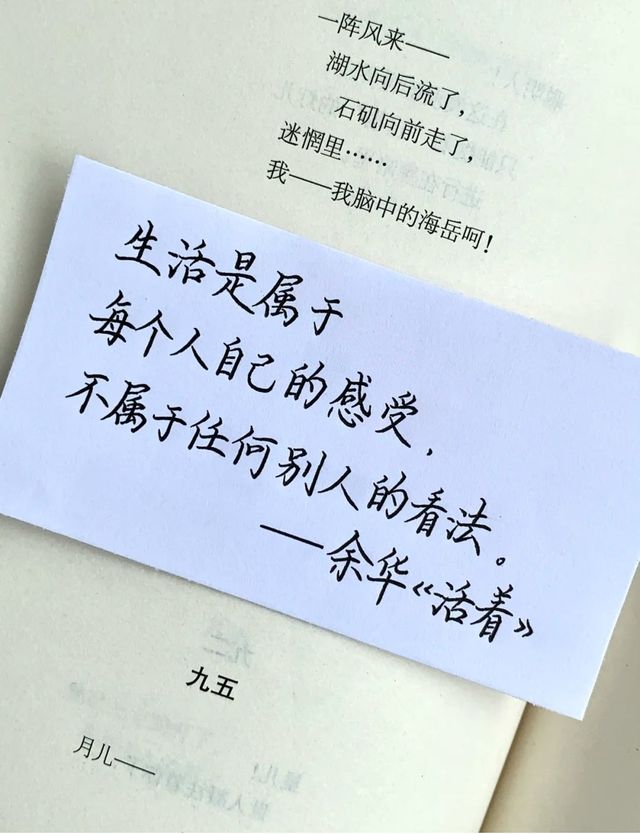 一阵风来——
湖水向后流了，
石矶向前走了，
迷惘里……
我——我脑中的海岳呵！
生活是属于
每个人自己的感受，
不属于任何别人的看法。
——余华《活着》
九五
月儿——